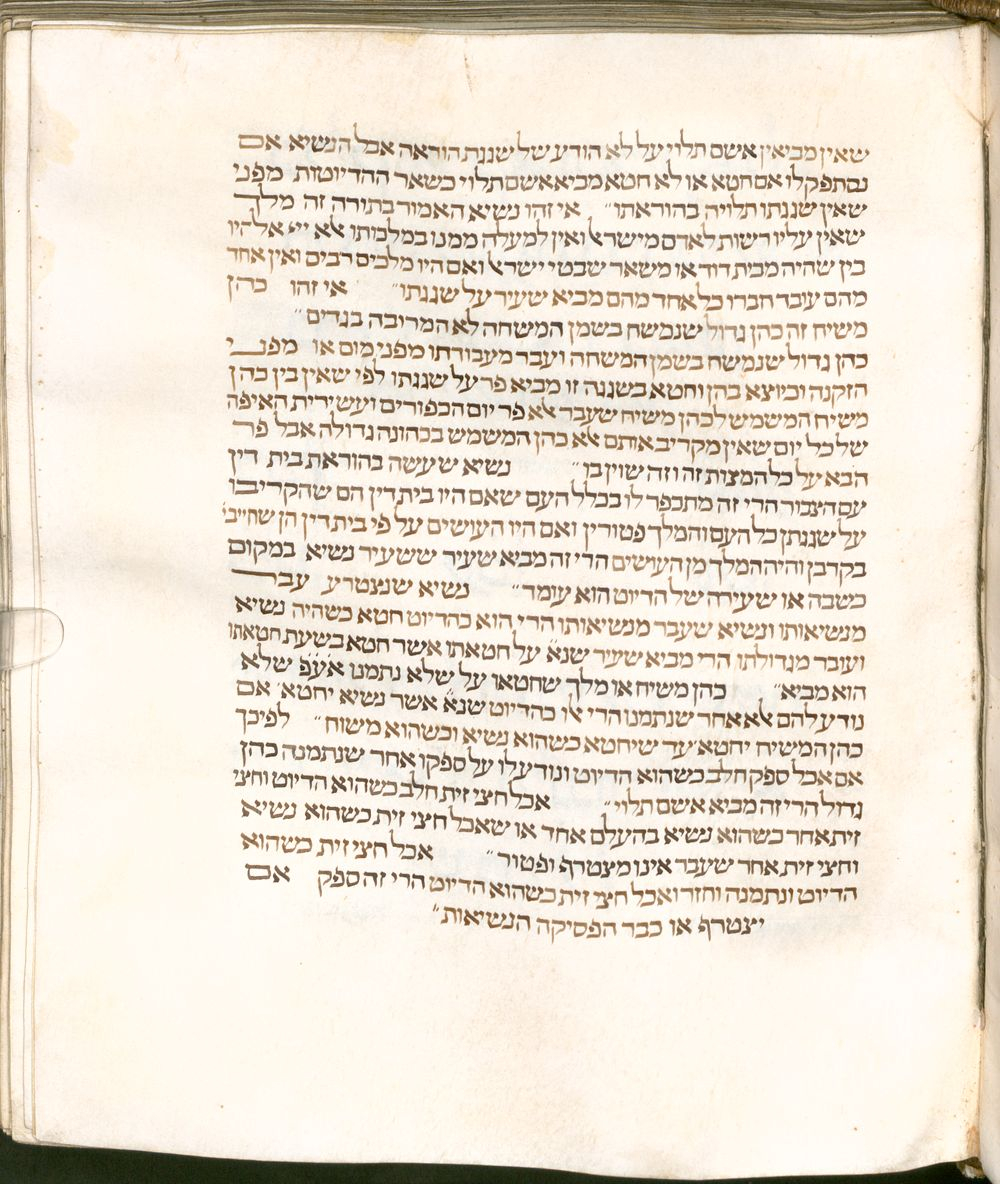 שאין מביאין אשם תלוי על לא הודע של שגגת הוראה אבל הנשיא אם
נסתפק לו אם חטא או לא חטא מביא אשם תלוי כשאר ההדיוטות מפני
שאין שגגתו תלויה בהוראתו״ אי זהו נשיא האמור בתורה זה מלך
שאין עליו רשות לאדם מישר׳ ואין למעלה ממנו במלכותו אלא ייי אלהיו
בין שהיה מבית דוד או משאר שבטי ישר׳ ואם היו מלכים רבים ואין אחד
מהם עובד חברו כל אחד מהם מביא שעיר על שגגתו״ אי זהו כהן
משיח זה כהן גדול שנמשח בשמן המשחה לא המרובה בגדים״
כהן גדול שנמשח בשמן המשחה ועבר מעבודתו מפני מום או מפני
הזקנה וכיוצא בהן וחטא בשגגה זו מביא פר על שגגתו לפי שאין בין כהן
משיח המשמש לכהן משיח שעבר אלא פר יום הכפורים ועשירית האיפה
של כל יום שאין מקריב אותם אלא כהן המשמש בכהונה גדולה אבל פר
הבא על כל המצות זה וזה שוין בו״ נשיא שעשה בהוראת בית דין
עם הצבור הרי זה מתכפר לו בכלל העם שאם היו בית דין הם שהקריבו
על שגגתן כל העם והמלך פטורין ואם היו העושים על פי בית דין הן שחייבי׳
בקרבן והיה המלך מן העושים הרי זה מביא שעיר ששעיר נשיא במקום
כשבה או שעירה של הדיוט הוא עומד״ נשיא שנצטרע עבר
מנשיאותו ונשיא שעבר מנשיאותו הרי הוא כהדיוט חטא כשהיה נשיא
ועובר מגדולתו הרי מביא שעיר שנא׳ על חטאתו אשר חטא כשעת חטאתו
הוא מביא״ כהן משיח או מלך שחטאו על שלא נתמנו אע׳פ שלא
נודע להם אלא אחר שנתמנו הרי אלו כהדיוט שנא׳ אשר נשיא יחטא׳ אם
כהן המשיח יחטא׳ עד שיחטא כשהוא נשיא וכשהוא משוח״ לפיכך
אם אכל ספק חלב כשהוא הדיוט ונודע לו על ספקו אחר שנתמנה כהן
גדול הרי זה מביא אשם תלוי״ אכל חצי זית חלב כשהוא הדיוט וחצי
זית אחר כשהוא נשיא בהעלם אחד או שאכל חצי זית כשהוא נשיא
וחצי זית אחר שעבר אינו מצטרף ופטור״ אכל חצי זית כשהוא
הדיוט ונתמנה וחזר ואכל חצי זית כשהוא הדיוט הרי זה ספק אם
יצטרף או כבר הפסיקה הנשיאות״